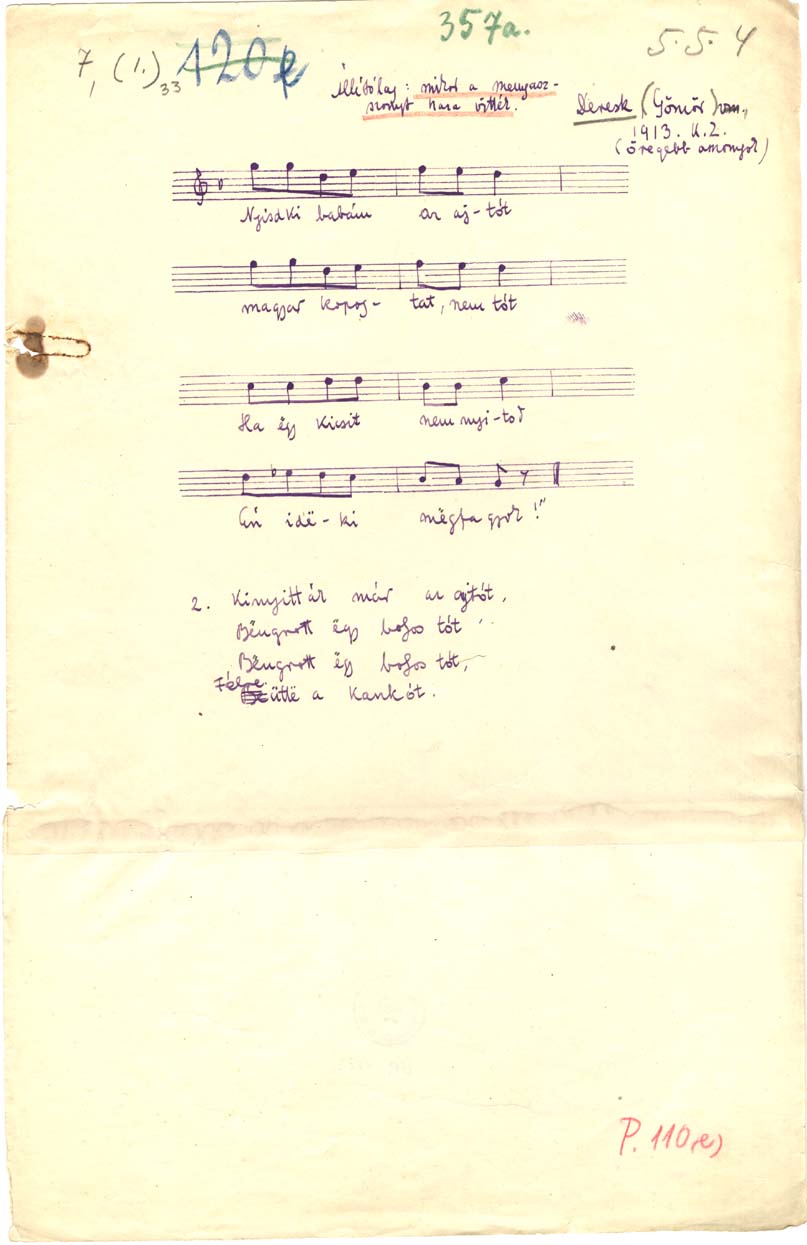 357a.
5. 5. 4
7, (1.) 33
120 e
Állítólag: mikor a menyasz-
szonyt haza vitték.
Deresk (Gömör) vm.,
1913. K.Z.
(öregebb asszonyok)
Nyisdki babám az aj-tót
magyar kopog- tat, nem tót
Ha ëgy kicsit nem nyi-tod
ën idë-ki mëgfagyok!"
2. Kinyitták már az ajtót,
Bëugrott ëgy bofos tót
Bëugrott ëgy bofos tót,
Félre
ütte a kankót.
P. 110(e)